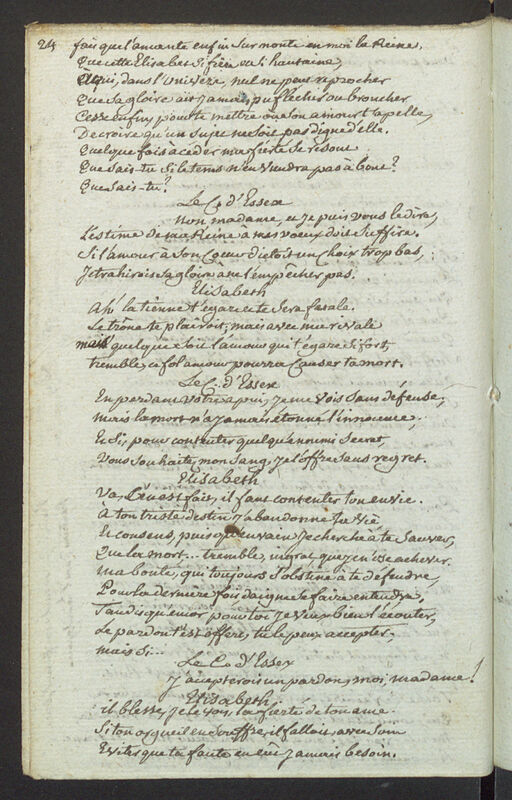 24 fais que l'amante enfin surmonte en moi la Reine,
Que cette Elisabet si fière ou si hautaine,
à qui, dans l'univers, nul ne peut reprocher
que sa gloire ait jamais pu flechir ou broncher
Cesse enfin, pour te mettre où son amour t'apelle,
De croire qu'un sujet ne soit pas digne d'elle.
Quelque fois à céder ma fierté se résout
Que sais-tu si le tems n'en viendra pas à bout?
Que sais-tu?
Le C. d'Essex
Non madame, et je puis vous le dire,
L'estime de ma Reine à mes voeux doit suffire.
Si l'amour à son Coeur dictoit un choix trop bas,
Je trahirois sa gloire à ne l'empecher pas.
Elisabeth
Ah! la tienne t'égare et te sera fatale.
Le trône te plairoit; mais avec ma rivale
mais quelque soit l'amour qui t'égare si fort
tremble, ce fol amour pourra causer ta mort.
Le C. d'Essex
En perdant votre apui, je me vois sans défense;
mais la mort n'a jamais étonné l'innocence;
Et si, pour contenter quelqu'ennemi secret,
Vous souhaitez mon sang, je l'offre sans regret.
Elisabeth
Va, c'en est fait, il faut contenter ton envie.
à ton triste destin j'abandonne ta vie
Et consens, puis qu'en vain je cherche à te sauver,
Que la mort... tremble, ingrat, que je n'ose achever.
ma bonté, qui toujours s'obstine à te défendre,
Pour la dernière fois daigne se faire entendre,
Tandis qu'encor pour toi je veux bien l'écouter,
Le pardon t'est offert, tu le peux accepter,
mais si...
Le C. d'Essex
J'accepterois un pardon, moi, madame!
Elisabeth
il blesse, je le vois, la fierté de ton ame.
Si ton orgueil en souffre, il falloit, avec soin
Eviter que ta faute en eût jamais besoin.